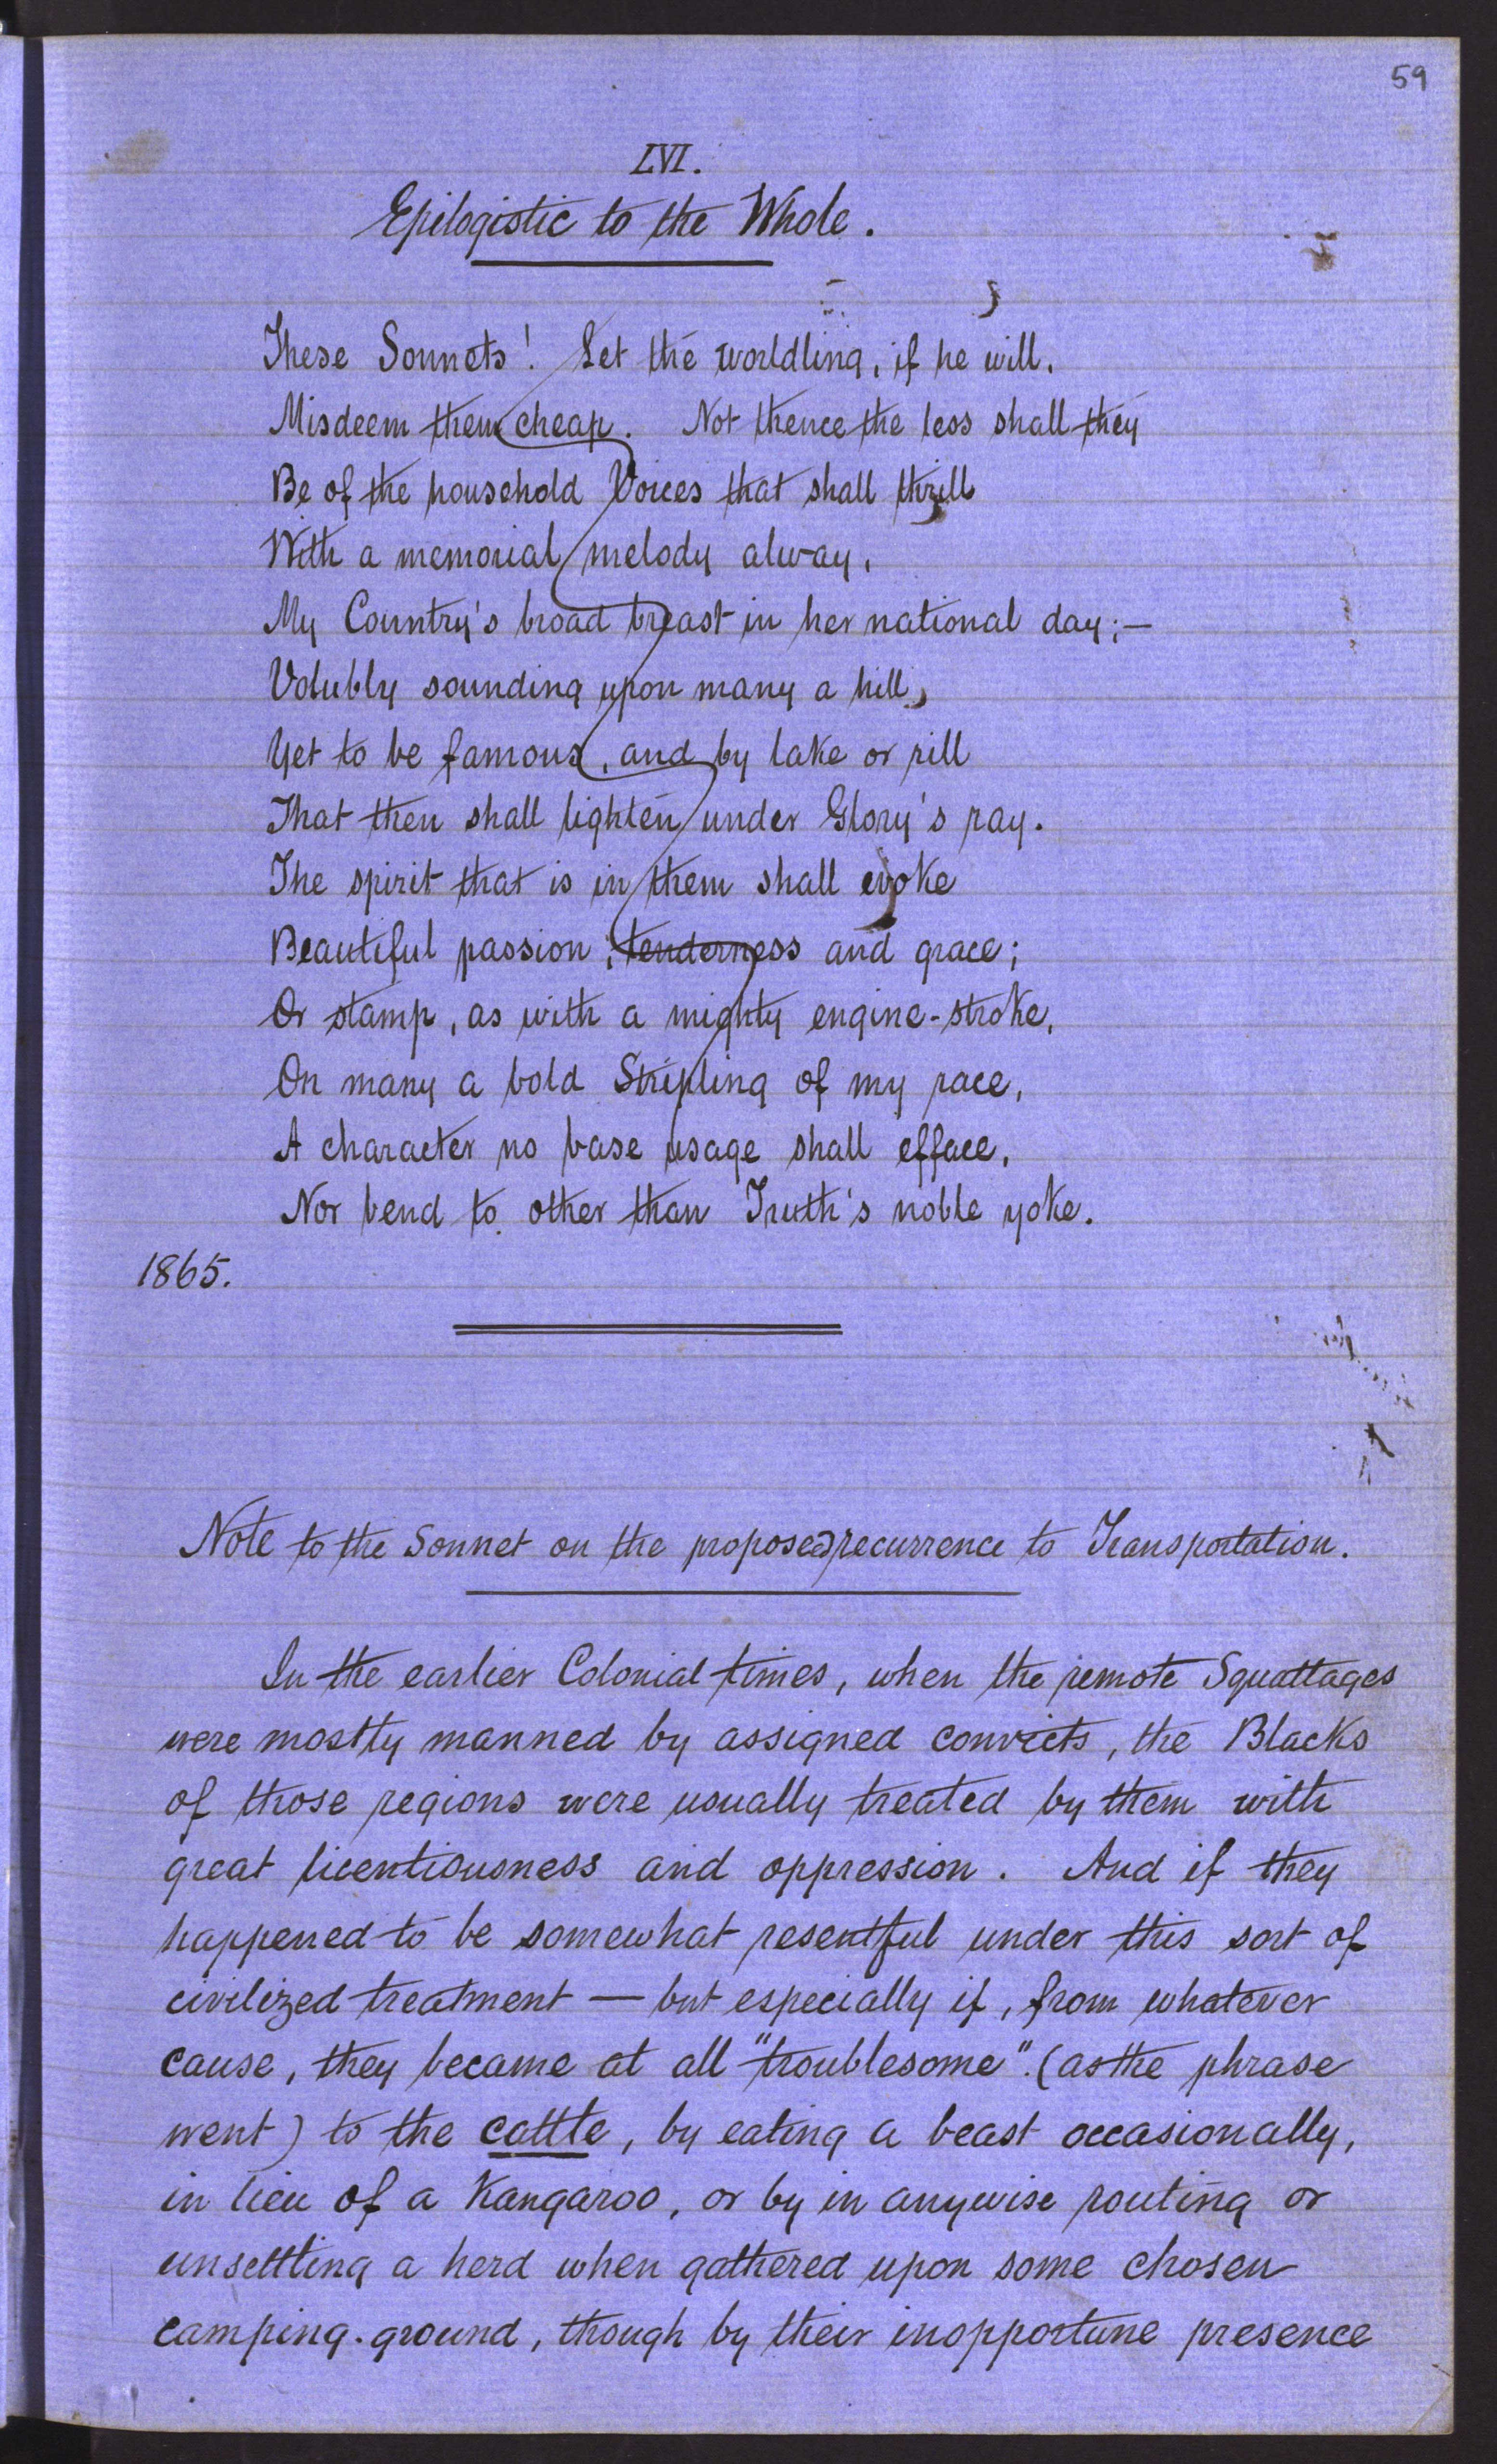 59
LVI.
Epilogistic to the Whole.
These Sonnets! Let the worldling, if he will,
Misdeem them cheap. Not thence the less shall they
Be of the household Voices that shall thrill
With a memorial melody alway,
My Country's broad breast in her national day;—
Volubly sounding upon many a hill,
Yet to be famous, and by lake or rill
That then shall lighten under Glory's ray.
The spirit that is in them shall evoke
Beautiful passion, tenderness and grace;
Or stamp, as with a mighty engine-stroke,
On many a bold Stripling of my race,
A character no base usage shall efface,
Nor bend to other than Truth's noble yoke.
1865.
Note to the Sonnet on the proposed recurrence to Transportation.
In the earlier Colonial times, when the remote Squattages
were mostly manned by assigned convicts, the Blacks
of those regions were usually treated by them with
great licentiousness and oppression. And if they
happened to be somewhat resentful under this sort of
civilized treatment — but especially if, from whatever
cause, they became at all "troublesome". (as the phrase
went) to the cattle, by eating a beast occasionally,
in lieu of a Kangaroo, or by in anywise routing or
unsettling a herd when gathered upon some chosen
camping-ground, though by their inopportune presence